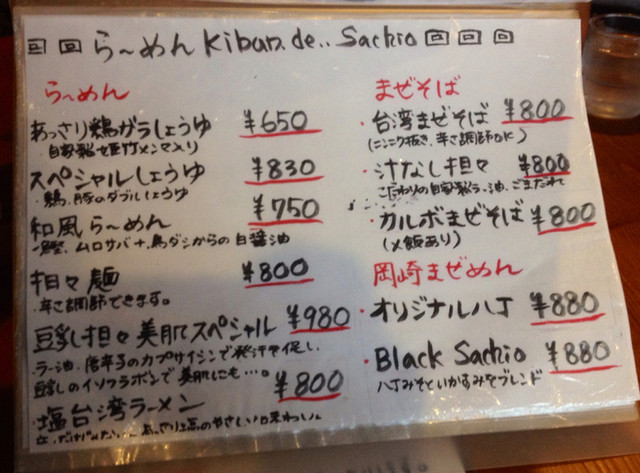 らーめん Kibun de.. Sachio
らーめん
あっさり鶏ガラしょうゆ ¥650
自家製女竹メンマ入り
スペシャルしょうゆ ¥830
・鶏、豚のダブルしょうゆ
和風らーめん ¥750
鰹、ムロサバ+鶏ダシからの白醤油
担々麺 ¥800
・辛さ調節できます。
豆乳担々美肌スペシャル ¥980
ラー油、唐辛子のカプサイシンで発汗を促し、
豆乳のイソフラボンで美肌にも…。
・塩台湾ラーメン ¥800
まぜそば
・台湾まぜそば ¥800
(ニンニク抜き、辛さ調節OK)
・汁なし担々 ¥800
こだわりの自家製ラー油、ごまだれ
・カルボまぜそば ¥800
(〆飯あり)
岡崎まぜめん
・オリジナル八丁 ¥880
・Black Sachio ¥880
八丁みそといかすみをブレンド